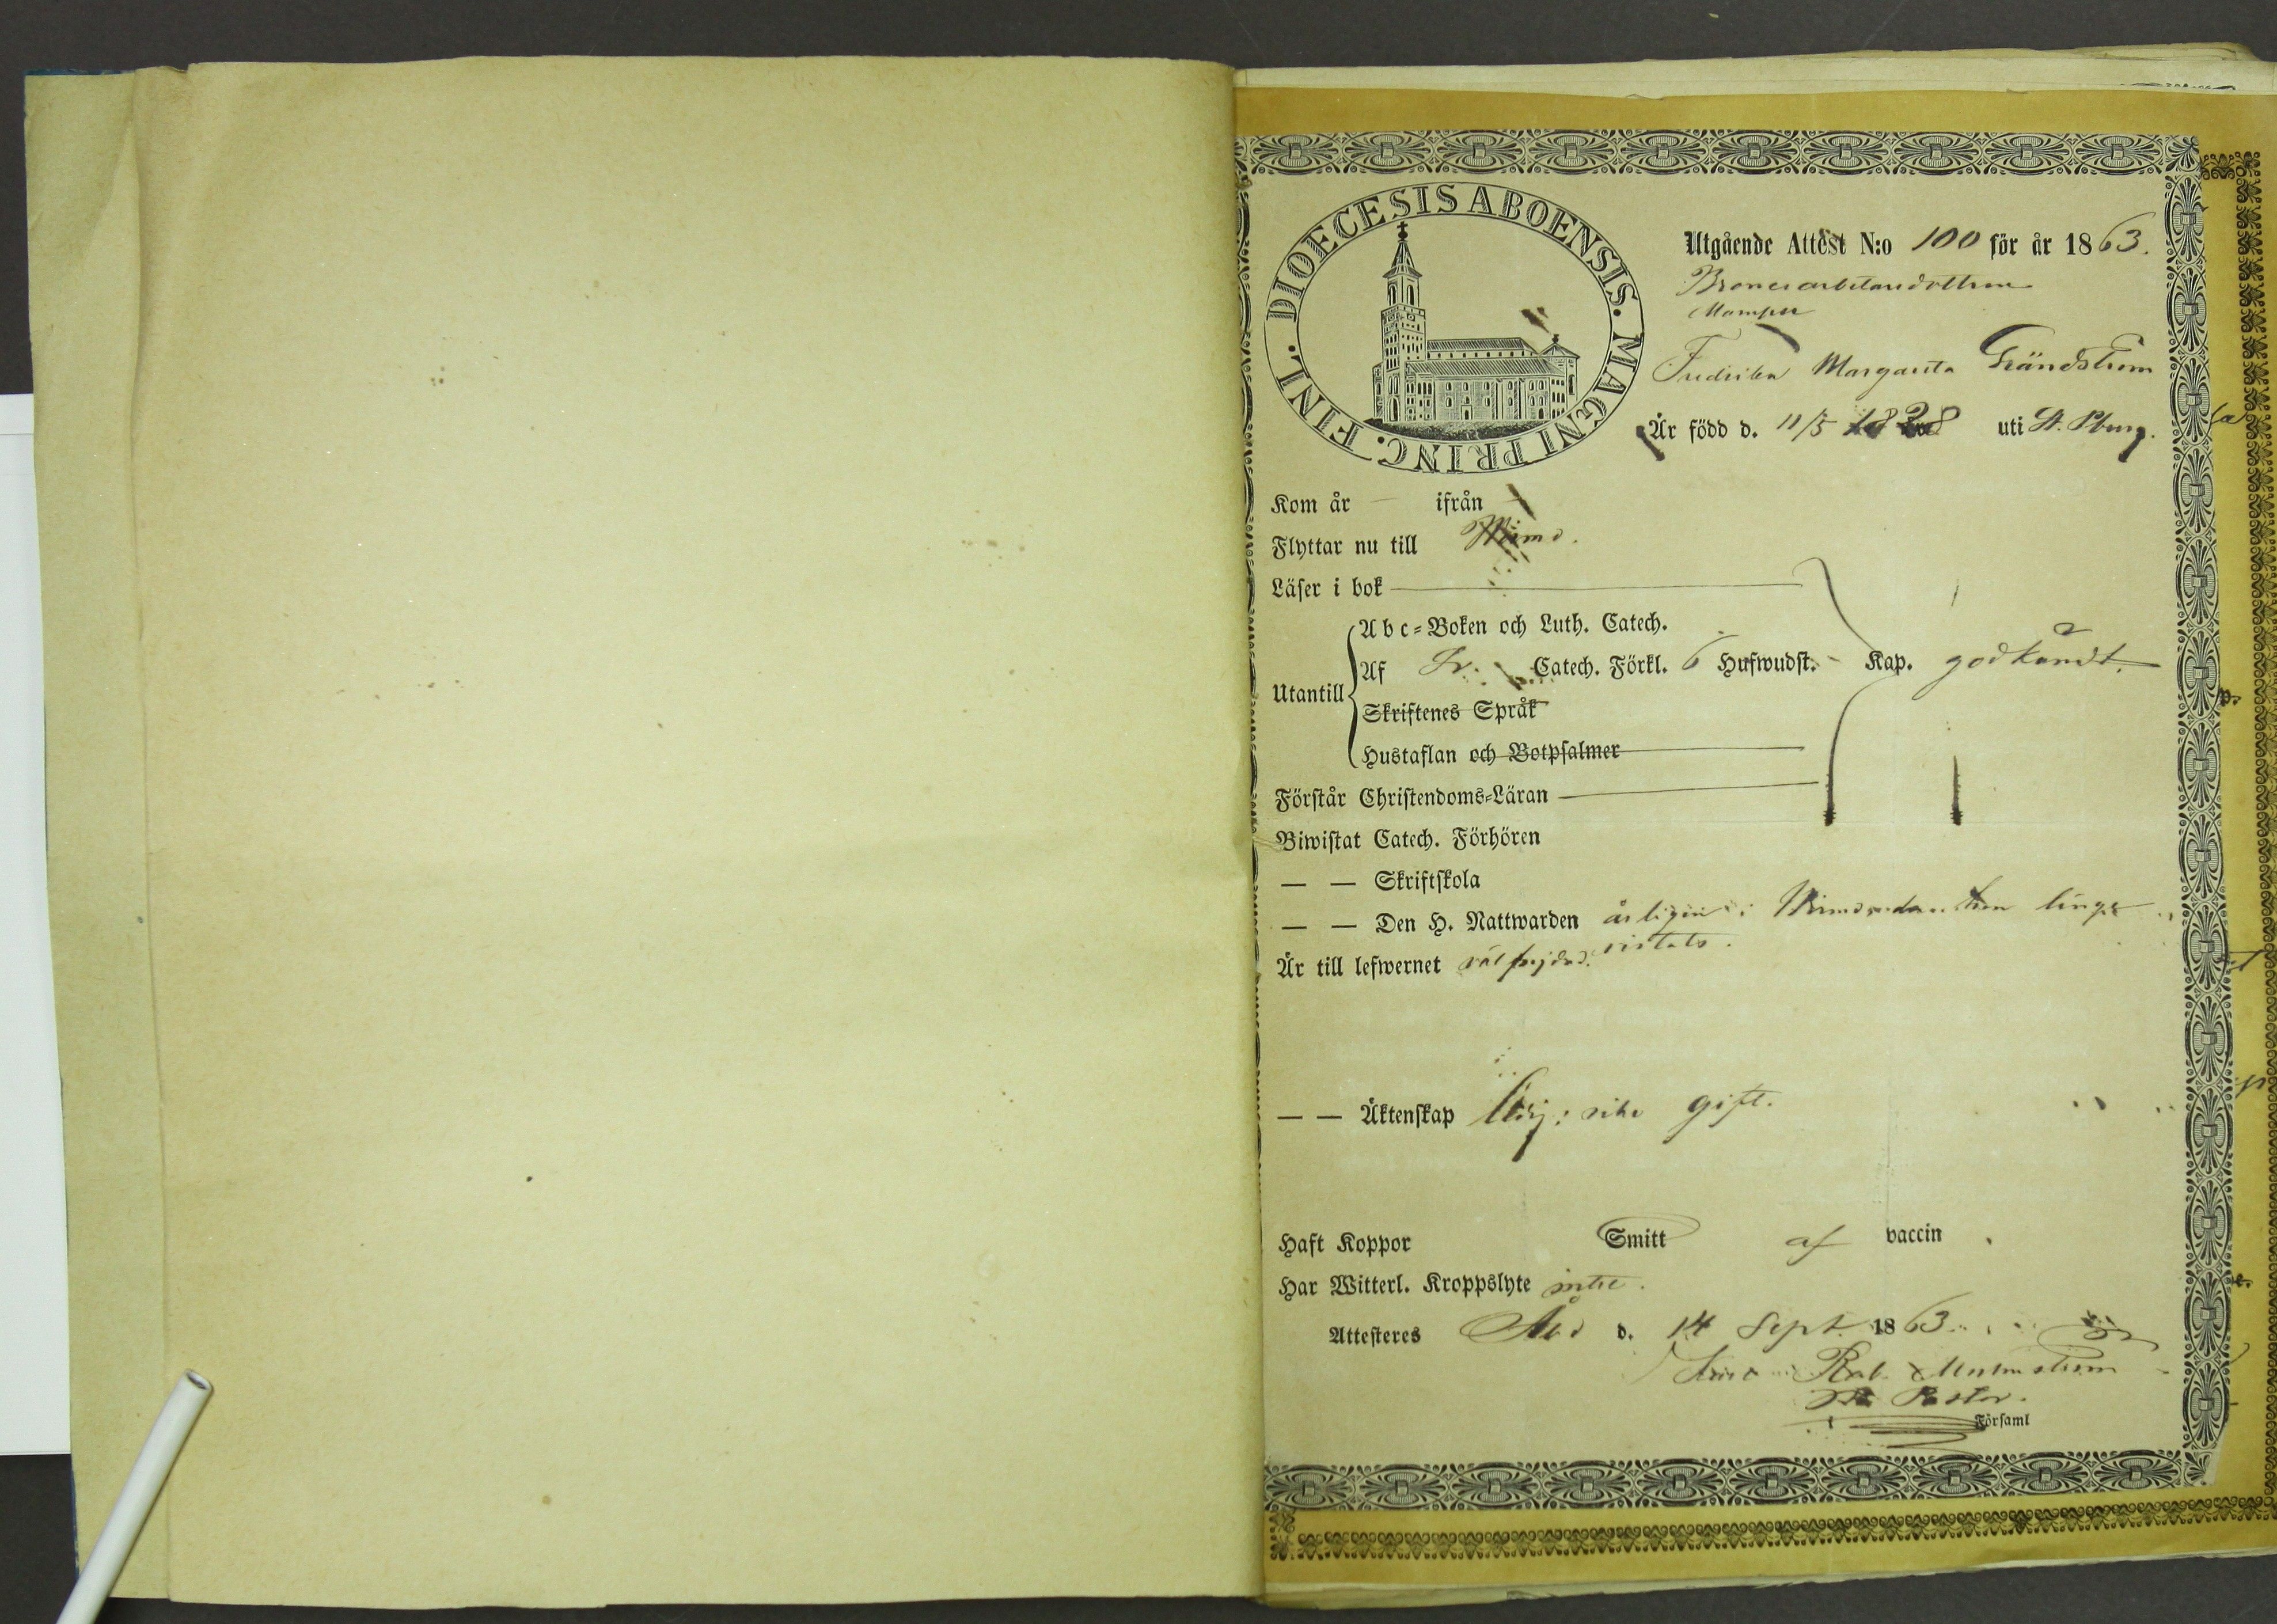 DIOECESIS ABOENSIS. MAGNI PRINC. FINL.
Utgående Attest N:o 100 för år 1863.
Mamsell
Fredrika Margareta Grändström
Är född d. 11/5 1828 uti St. Pburg.
Kom år — ifrån —
Flyttar nu till
Läser i bok
Utantill
Abc-Boken och Luth. Catech.
Af Sv. Catech. Förkl. 6 Hufwudst. - Kap. godkändt.
Skriftenes Språk
Hustaflan och Botpsalmer
Förstår Christendoms-Läran
Biwistat Catech. Förhören
— — Skriftskola
— — Den H. Nattwarden årligen i der hon länge
vistats.
Är till lefwernet välfrejdad.
— — Äktenskap Ledig: icke gift.
Haft Koppor Smitt af vaccin
Har Witterl. Kroppslyte intet.
Attesteres Åbo d. 14 Sept. 1863.
Malmström
Pastor.
Församl